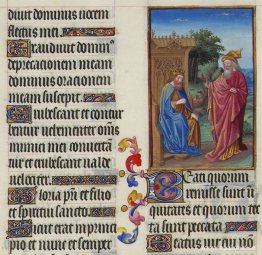 diuit dominus uocem
fletus mei.
Exaudiuit domin
deprecacionem meam
dominus oracionem
meam suscepit.
Erubescant et contur
bentur uehementer om̅s
inimici mei conuerta̅
tur et erubescant ualde
uelociter.
Gloria pri et filio
et spiritui sancto.
Sicut erat in princi
pio et nunc et semper
Beati quorum
remisse sunt ini
quitates et quorum tec
ta sunt peccata.
Beatus uir cui no̅